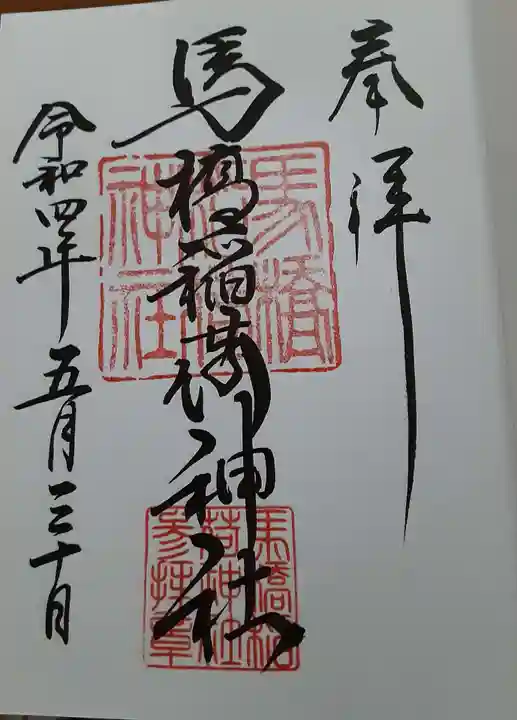 奉拝
馬橋稲荷神社
馬橋稲荷神社
馬橋稲荷神社参拝章
令和四年五月三十日